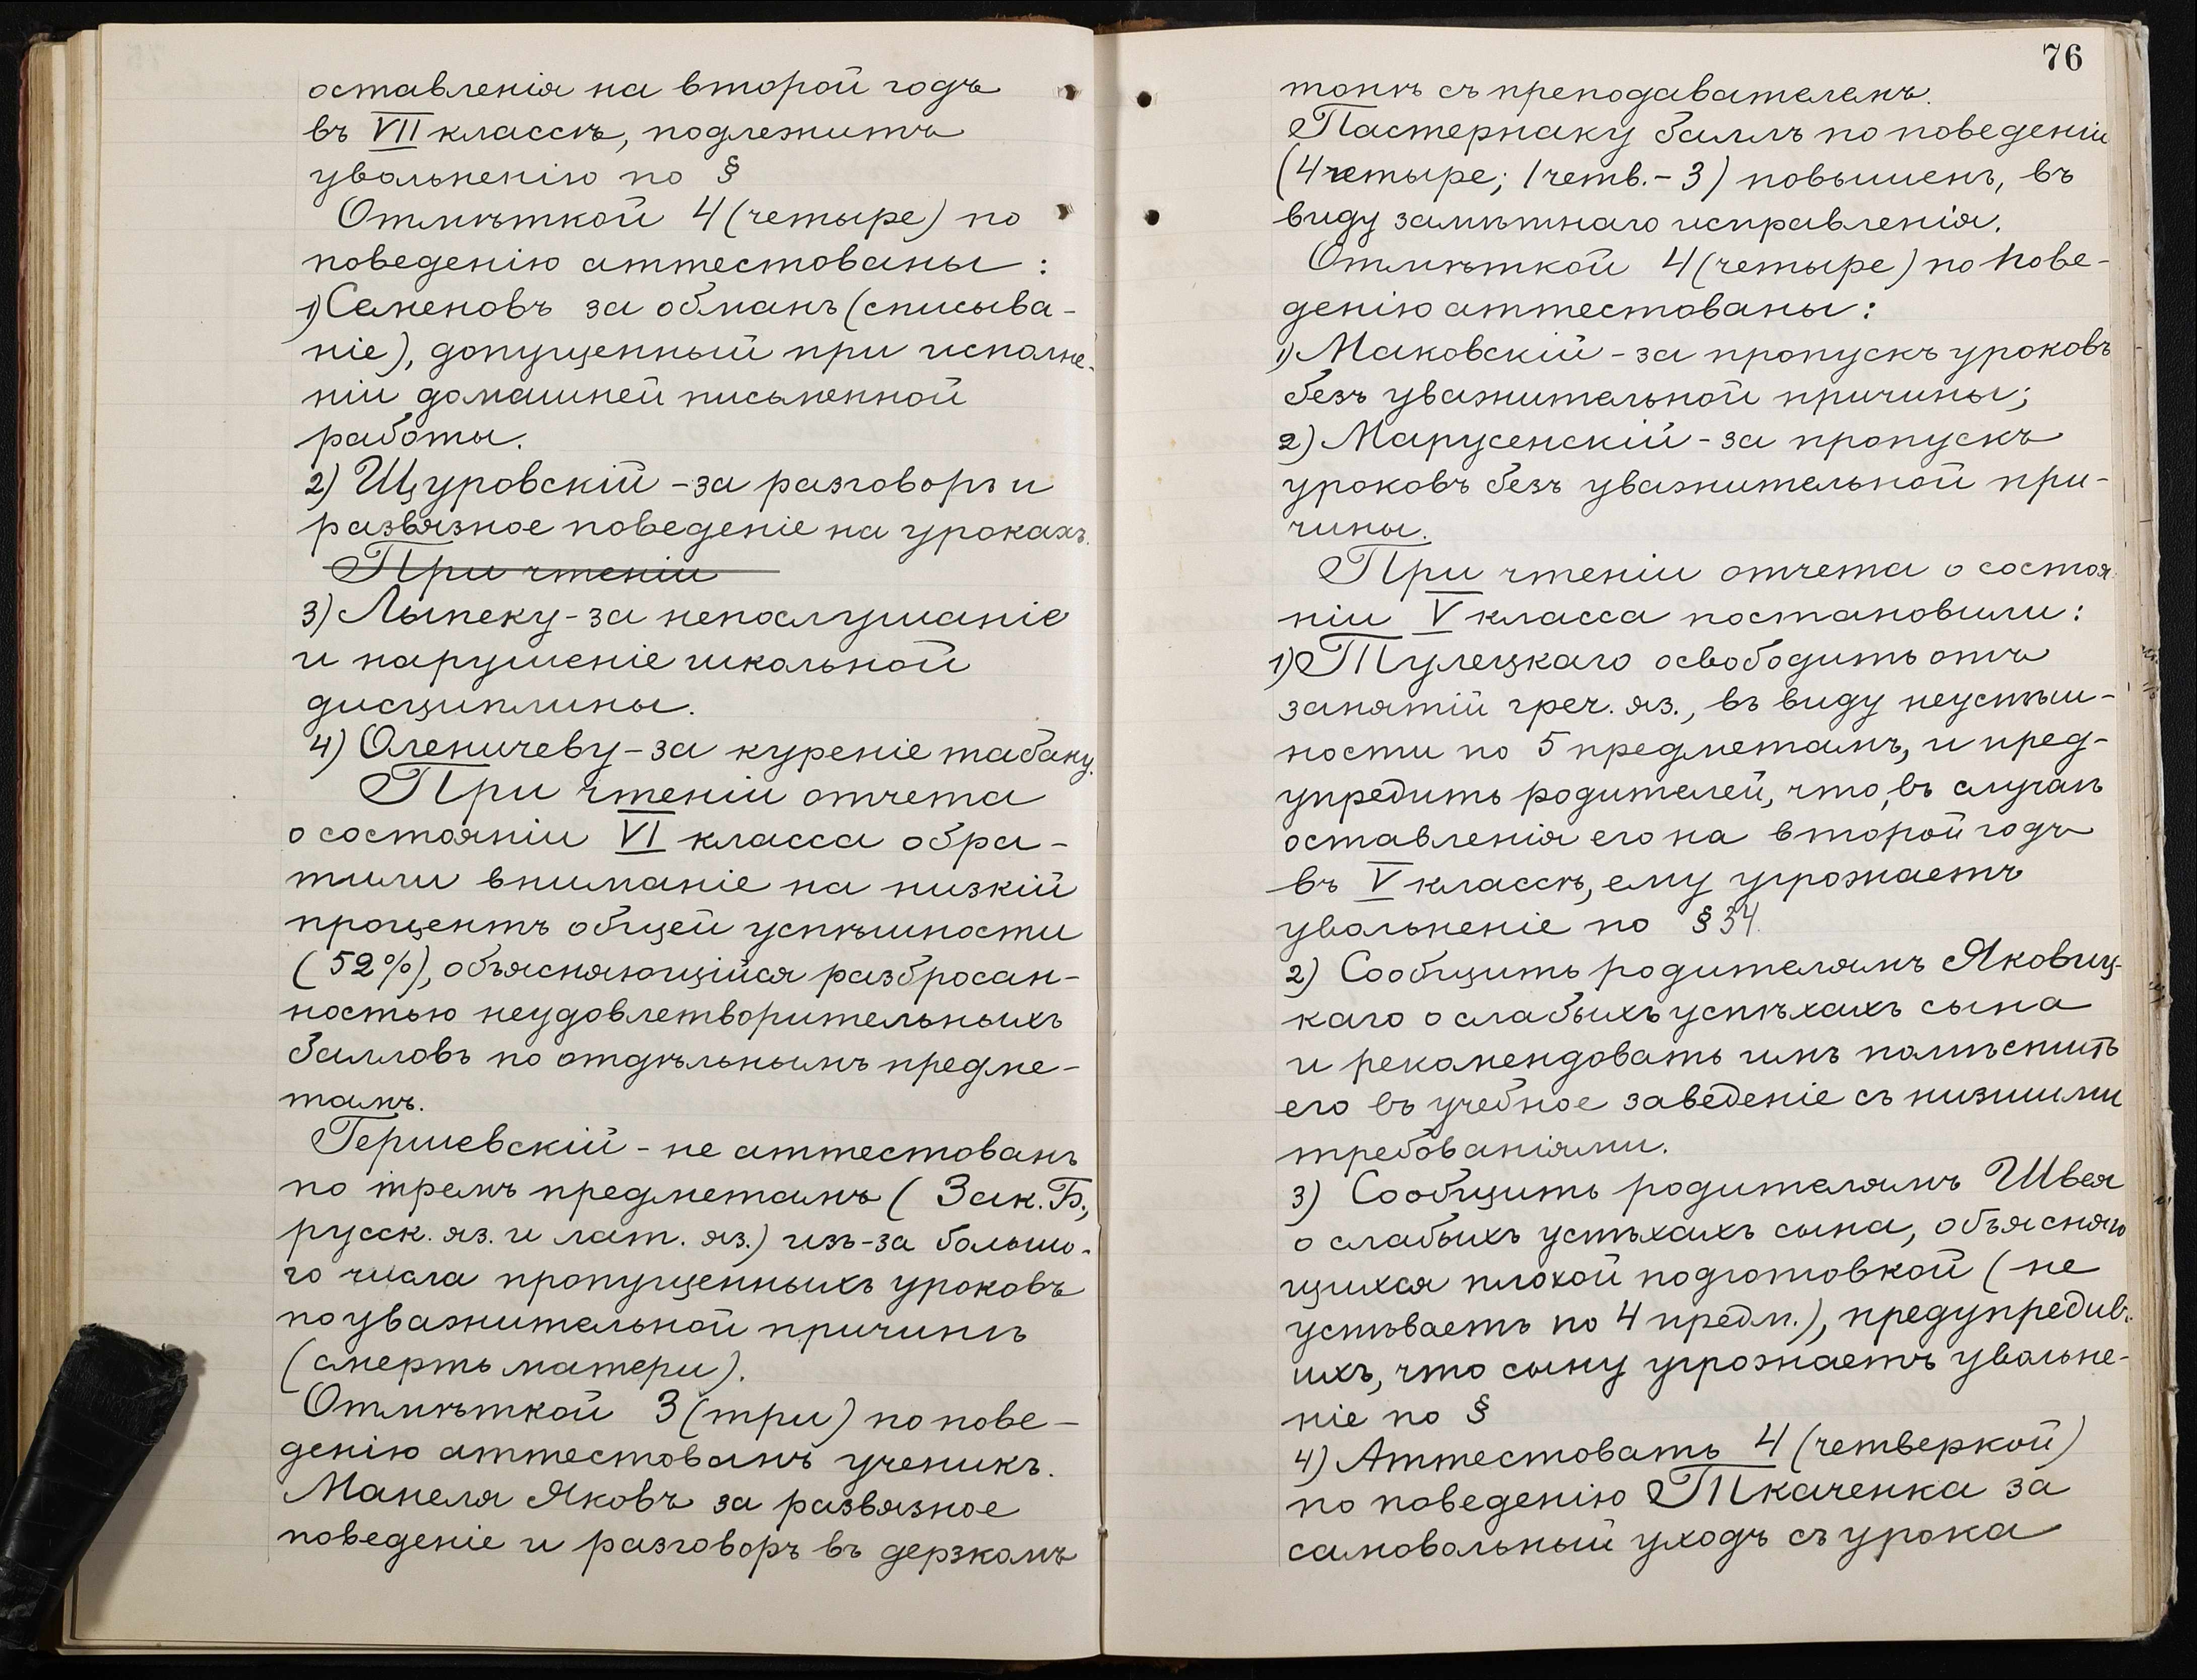 оставленія на второй годъ
въ VII классѣ, подлежитъ
увольненію по §
Отмѣткой 4 (четыре) по
поведенію аттестованы :
1) Семеновъ за обманъ (списыва-
ніе), допущенный при исполне-
ніи домашней письменной
работы.
2) Щуровскій - за разговоръ и
развязное поведеніе на урокахъ.
При чтеніи
3) Лыпеку - за непослушаніе
и нарушеніе школьной
дисциплины.
4) Оленичеву - за куреніе табаку.
При чтеніи отчета
о состояніи VI класса обра-
тили вниманіе на низкій
процентъ общей успѣшности
(52%), объясняющійся разбросан-
ностью неудовлетворительныхъ
балловъ по отдѣльнымъ предме-
тамъ.
Гершевскій - не аттестованъ
по тремъ предметамъ (Зак. Б.,
русск. яз. и лат. яз.) изъ-за большо-
го числа пропущенныхъ уроковъ
по уважительной причинѣ
(смерть матери).
Отмѣткой 3 (три) по пове-
денію аттестованъ ученикъ.
Манеля Яковъ за развязное
поведеніе и разговоръ въ дерзкомъ
76
тонѣ съ преподавателемъ.
Пастернаку баллъ по поведенію
(4 четыре; 1 четв. - 3) повышенъ, въ
виду замѣтнаго исправленія.
Отмѣткой 4 (четыре) по пове-
денію аттестованы :
1) Маковскій - за пропускъ уроковъ
безъ уважительной причины;
2) Марусенскій - за пропускъ
уроковъ безъ уважительной при-
чины.
При чтеніи отчета о состоя-
ніи V класса постановили :
1) Тулецкаго освободить отъ
занятій греч. яз., въ виду неуспѣш-
ности по 5 предметамъ, и пред-
упредить родителей, что, въ случаѣ
оставленія его на второй годъ
въ V классѣ, ему угрожаетъ
увольненіе по § 34.
2) Сообщить родителямъ Яковиц-
каго о слабыхъ успѣхахъ сына
и рекомендовать имъ помѣстить
его въ учебное заведеніе съ низшими
требованіями.
3) Сообщить родителямъ Швея
о слабыхъ успѣхахъ сына, объясняю
щихся плохой подготовкой (не
успѣваетъ по 4 предм.), предупредив.
ихъ, что сыну угрожаетъ увольне-
ніе по §
4) Аттестовать 4 (четверкой)
по поведенію Ткаченка за
самовольный уходъ съ урока